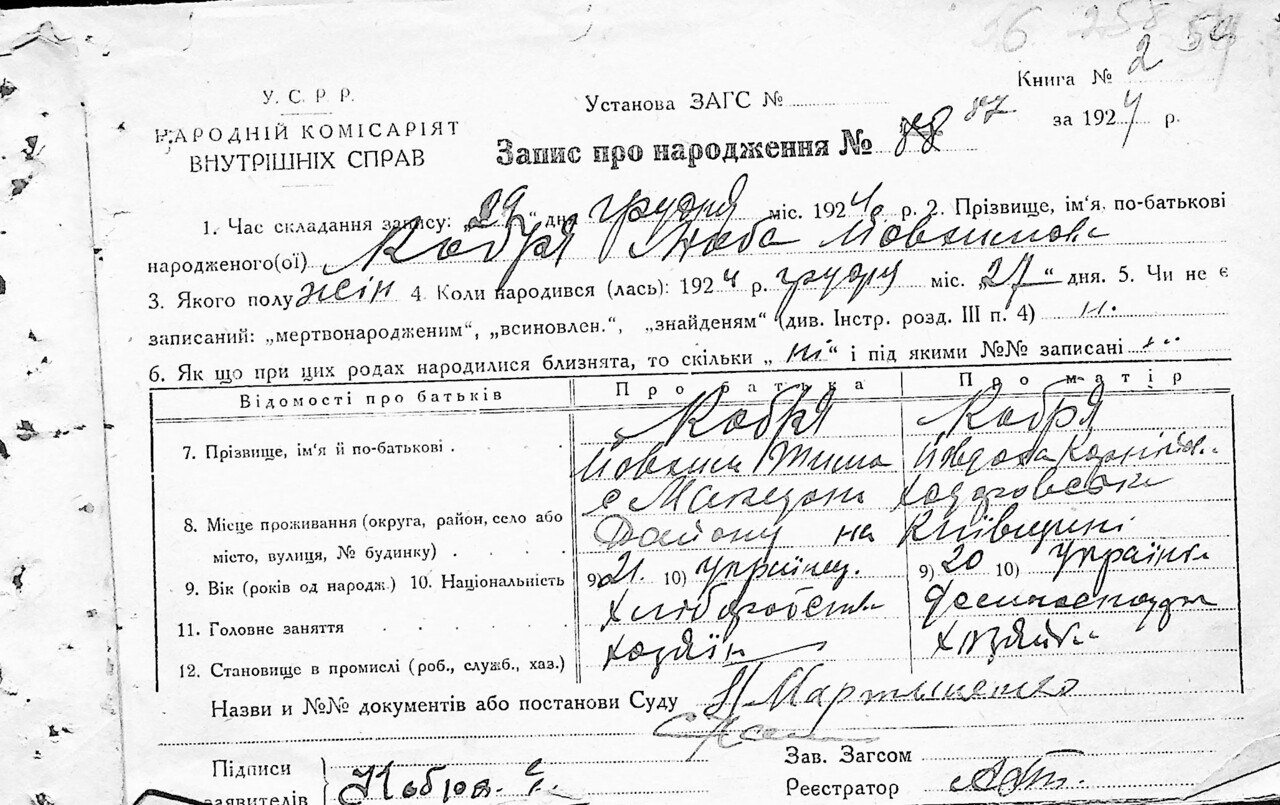 26 258 54
У. С. Р. Р.
НАРОДНІЙ КОМІСАРІЯТ
ВНУТРІШНІХ СПРАВ
Установа ЗАГС №
Книга № 2
за 1924 р.
Запис про народження № 88 87
1. Час складання запису: „29“ дня грудня міс. 1924 р. 2. Прізвище, ім‘я, по-батькові
народженого(ої) Кобря Люба Йовхимова
3. Якого полу жін 4. Коли народився (лась): 1924 р. грудня міс. „27“ дня. 5. Чи не є
записаний: „мертвонародженим“, „всиновлен.“, „знайденям“ (див. Інстр. розд. III п. 4) н.
6. Як що при цих родах народилися близнята, то скільки „ ні “ і під якими №№ записані
Відомості про батьків Про батька Про матір
7. Прізвище, ім‘я й по-батькові . Кобря Кобря
Йовхим Тимо Йовдоха
8. Місце проживання (округа, район, село або с Македони
місто, вулиця, № будинку) . . . . Району на Київщині
9. Вік (років од народж.) 10. Національність 9) 21. 10) Українец. 9) 20 10) Україн
11. Головне заняття . . . . . Хлібороб
12. Становище в промислі (роб., служб., хаз.) хозяїн хозяйк
Назви и №№ документів або постанови Суду Мартиненко
Підписи
заявителів Кобря.
Зав. Загсом
Реєстратор